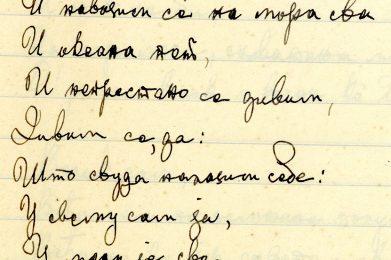 И навозим се на мора сва
И океана пет,
И непрестано се дивим,
Дивим се, да:
Што свуда налазим себе:
У свему сам ја,
И